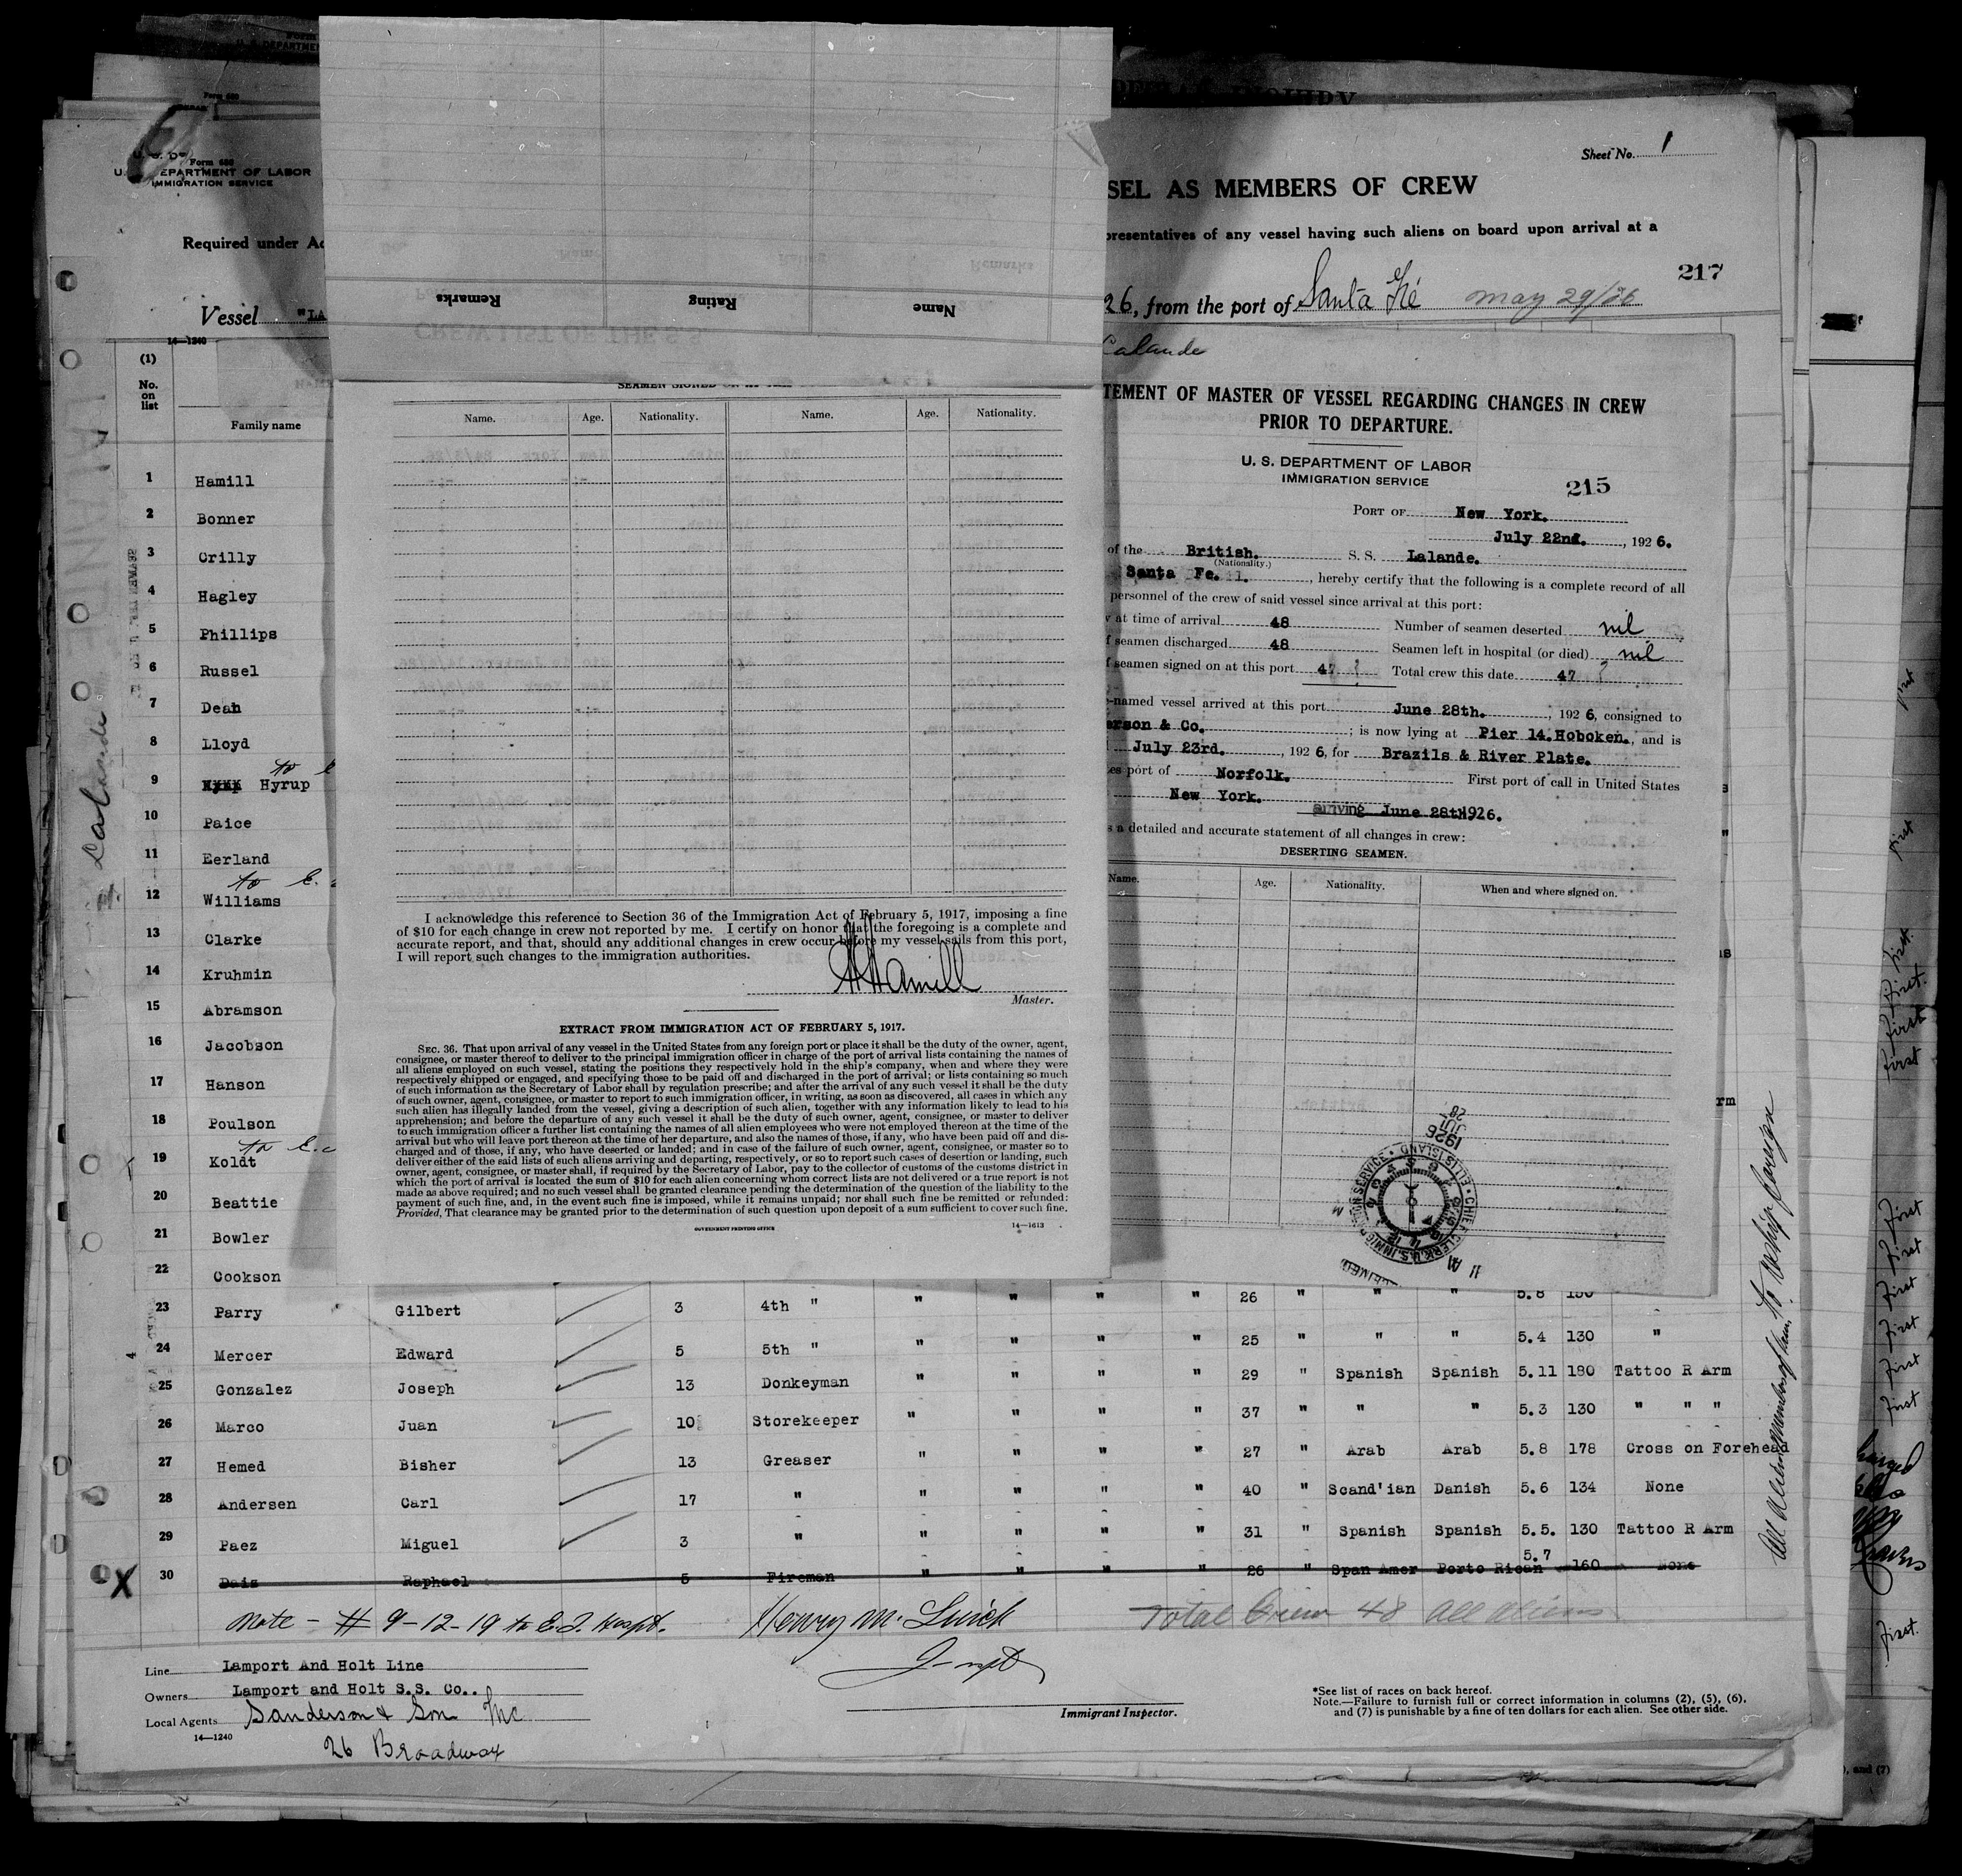 Form 680
U. S. DEPARTMENT OF LABOR
IMMIGRATION SERVICE
Required under Ac
Vessel "LA
14—1240
(1)
No. on list
Family name
1 Hamill
2 Bonner
3 Crilly
4 Hagley
5 Phillips
6 Russel
7 Dean
8 Lloyd
to
9 Hyrup
10 Paice
11 Eerland
to E.
12 Williams
13 Clarke
14 Kruhmin
15 Abramson
16 Jacobson
17 Hanson
18 Poulson
to E.
19 Koldt
20 Beattie
21 Bowler
22 Cookson
23 Parry Gilbert 3 4th " " " " " 26 " " " 5.8 150
24 Mercer Edward 5 5th " " " " " 25 " " " 5.4 130 "
25 Gonzalez Joseph 13 Donkeyman " " " " 29 " Spanish Spanish 5.11 180 Tattoo R Arm
26 Marco Juan 10 Storekeeper " " " " 37 " " " 5.3 130 " " "
27 Hemed Bisher 13 Greaser " " " " 27 " Arab Arab 5.8 178 Cross on Forehead
28 Andersen Carl 17 " " " " " 40 " Scand'ian Danish 5.6 134 None
29 Paez Miguel 3 " " " " " 31 " Spanish Spanish 5.5. 130 Tattoo R Arm
X 30 Dais Raphael 5 Fireman " " " " 26 " Span Amer Porto Rican 5.7 160 None
Note - # 9-12-19 to E.I. Hospt. Henry M. Total Crew 48 All aliens
Line Lamport And Holt Line
Owners Lamport and Holt S.S. Co..
Local Agents Sanderson & Son Inc
14—1240
26 Broadway
Immigrant Inspector.
*See list of races on back hereof.
Note.—Failure to furnish full or correct information in columns (2), (5), (6),
and (7) is punishable by a fine of ten dollars for each alien. See other side.
Lalande
Remarks Rating Name
Name. Age. Nationality. Name. Age. Nationality.
I acknowledge this reference to Section 36 of the Immigration Act of February 5, 1917, imposing a fine
of $10 for each change in crew not reported by me. I certify on honor that the foregoing is a complete and
accurate report, and that, should any additional changes in crew occur before my vessel sails from this port,
I will report such changes to the immigration authorities.
Hamill
Master.
EXTRACT FROM IMMIGRATION ACT OF FEBRUARY 5, 1917.
SEC. 36. That upon arrival of any vessel in the United States from any foreign port or place it shall be the duty of the owner, agent,
consignee, or master thereof to deliver to the principal immigration officer in charge of the port of arrival lists containing the names of
all aliens employed on such vessel, stating the positions they respectively hold in the ship's company, when and where they were
respectively shipped or engaged, and specifying those to be paid off and discharged in the port of arrival; or lists containing so much
of such information as the Secretary of Labor shall by regulation prescribe; and after the arrival of any such vessel it shall be the duty
of such owner, agent, consignee, or master to report to such immigration officer, in writing, as soon as discovered, all cases in which any
such alien has illegally landed from the vessel, giving a description of such alien, together with any information likely to lead to his
apprehension; and before the departure of any such vessel it shall be the duty of such owner, agent, consignee, or master to deliver
to such immigration officer a further list containing the names of all alien employees who were not employed thereon at the time of the
arrival but who will leave port thereon at the time of her departure, and also the names of those, if any, who have been paid off and dis-
charged and of those, if any, who have deserted or landed; and in case of the failure of such owner, agent, consignee, or master so to
deliver either of the said lists of such aliens arriving and departing, respectively, or so to report such cases of desertion or landing, such
owner, agent, consignee, or master shall, if required by the Secretary of Labor, pay to the collector of customs of the customs district in
which the port of arrival is located the sum of $10 for each alien concerning whom correct lists are not delivered or a true report is not
made as above required; and no such vessel shall be granted clearance pending the determination of the question of the liability to the
payment of such fine, and, in the event such fine is imposed, while it remains unpaid; nor shall such fine be remitted or refunded:
Provided, That clearance may be granted prior to the determination of such question upon deposit of a sum sufficient to cover such fine.
GOVERNMENT PRINTING OFFICE
14—1613
Sheet No. 1
SEL AS MEMBERS OF CREW
presentatives of any vessel having such aliens on board upon arrival at a
217
26, from the port of Santa Fé May 29/26
Lalande
TEMENT OF MASTER OF VESSEL REGARDING CHANGES IN CREW
PRIOR TO DEPARTURE.
U. S. DEPARTMENT OF LABOR
IMMIGRATION SERVICE
215
PORT OF New York.
July 22nd., 1926.
of the British. S. S. Lalande.
(Nationality.)
Santa Fe., hereby certify that the following is a complete record of all
personnel of the crew of said vessel since arrival at this port:
at time of arrival 48 Number of seamen deserted nil
f seamen discharged 48 Seamen left in hospital (or died) nil
f seamen signed on at this port 47 Total crew this date 47
-named vessel arrived at this port June 28th., 1926, consigned to
erson & Co.; is now lying at Pier 14.Hoboken., and is
July 23rd., 1926, for Brazils & River Plate.
es port of Norfolk. First port of call in United States
New York. arriving June 28th1926.
s a detailed and accurate statement of all changes in crew:
DESERTING SEAMEN.
Name. Age. Nationality. When and where signed on.
1926
JUL
28
CHIEF CLERK, U.S. IMMIGRATION SERVICE • ELLIS ISLAND
first
first
first.
first
first
first
first
first
first
first
first
first.
, and (7)